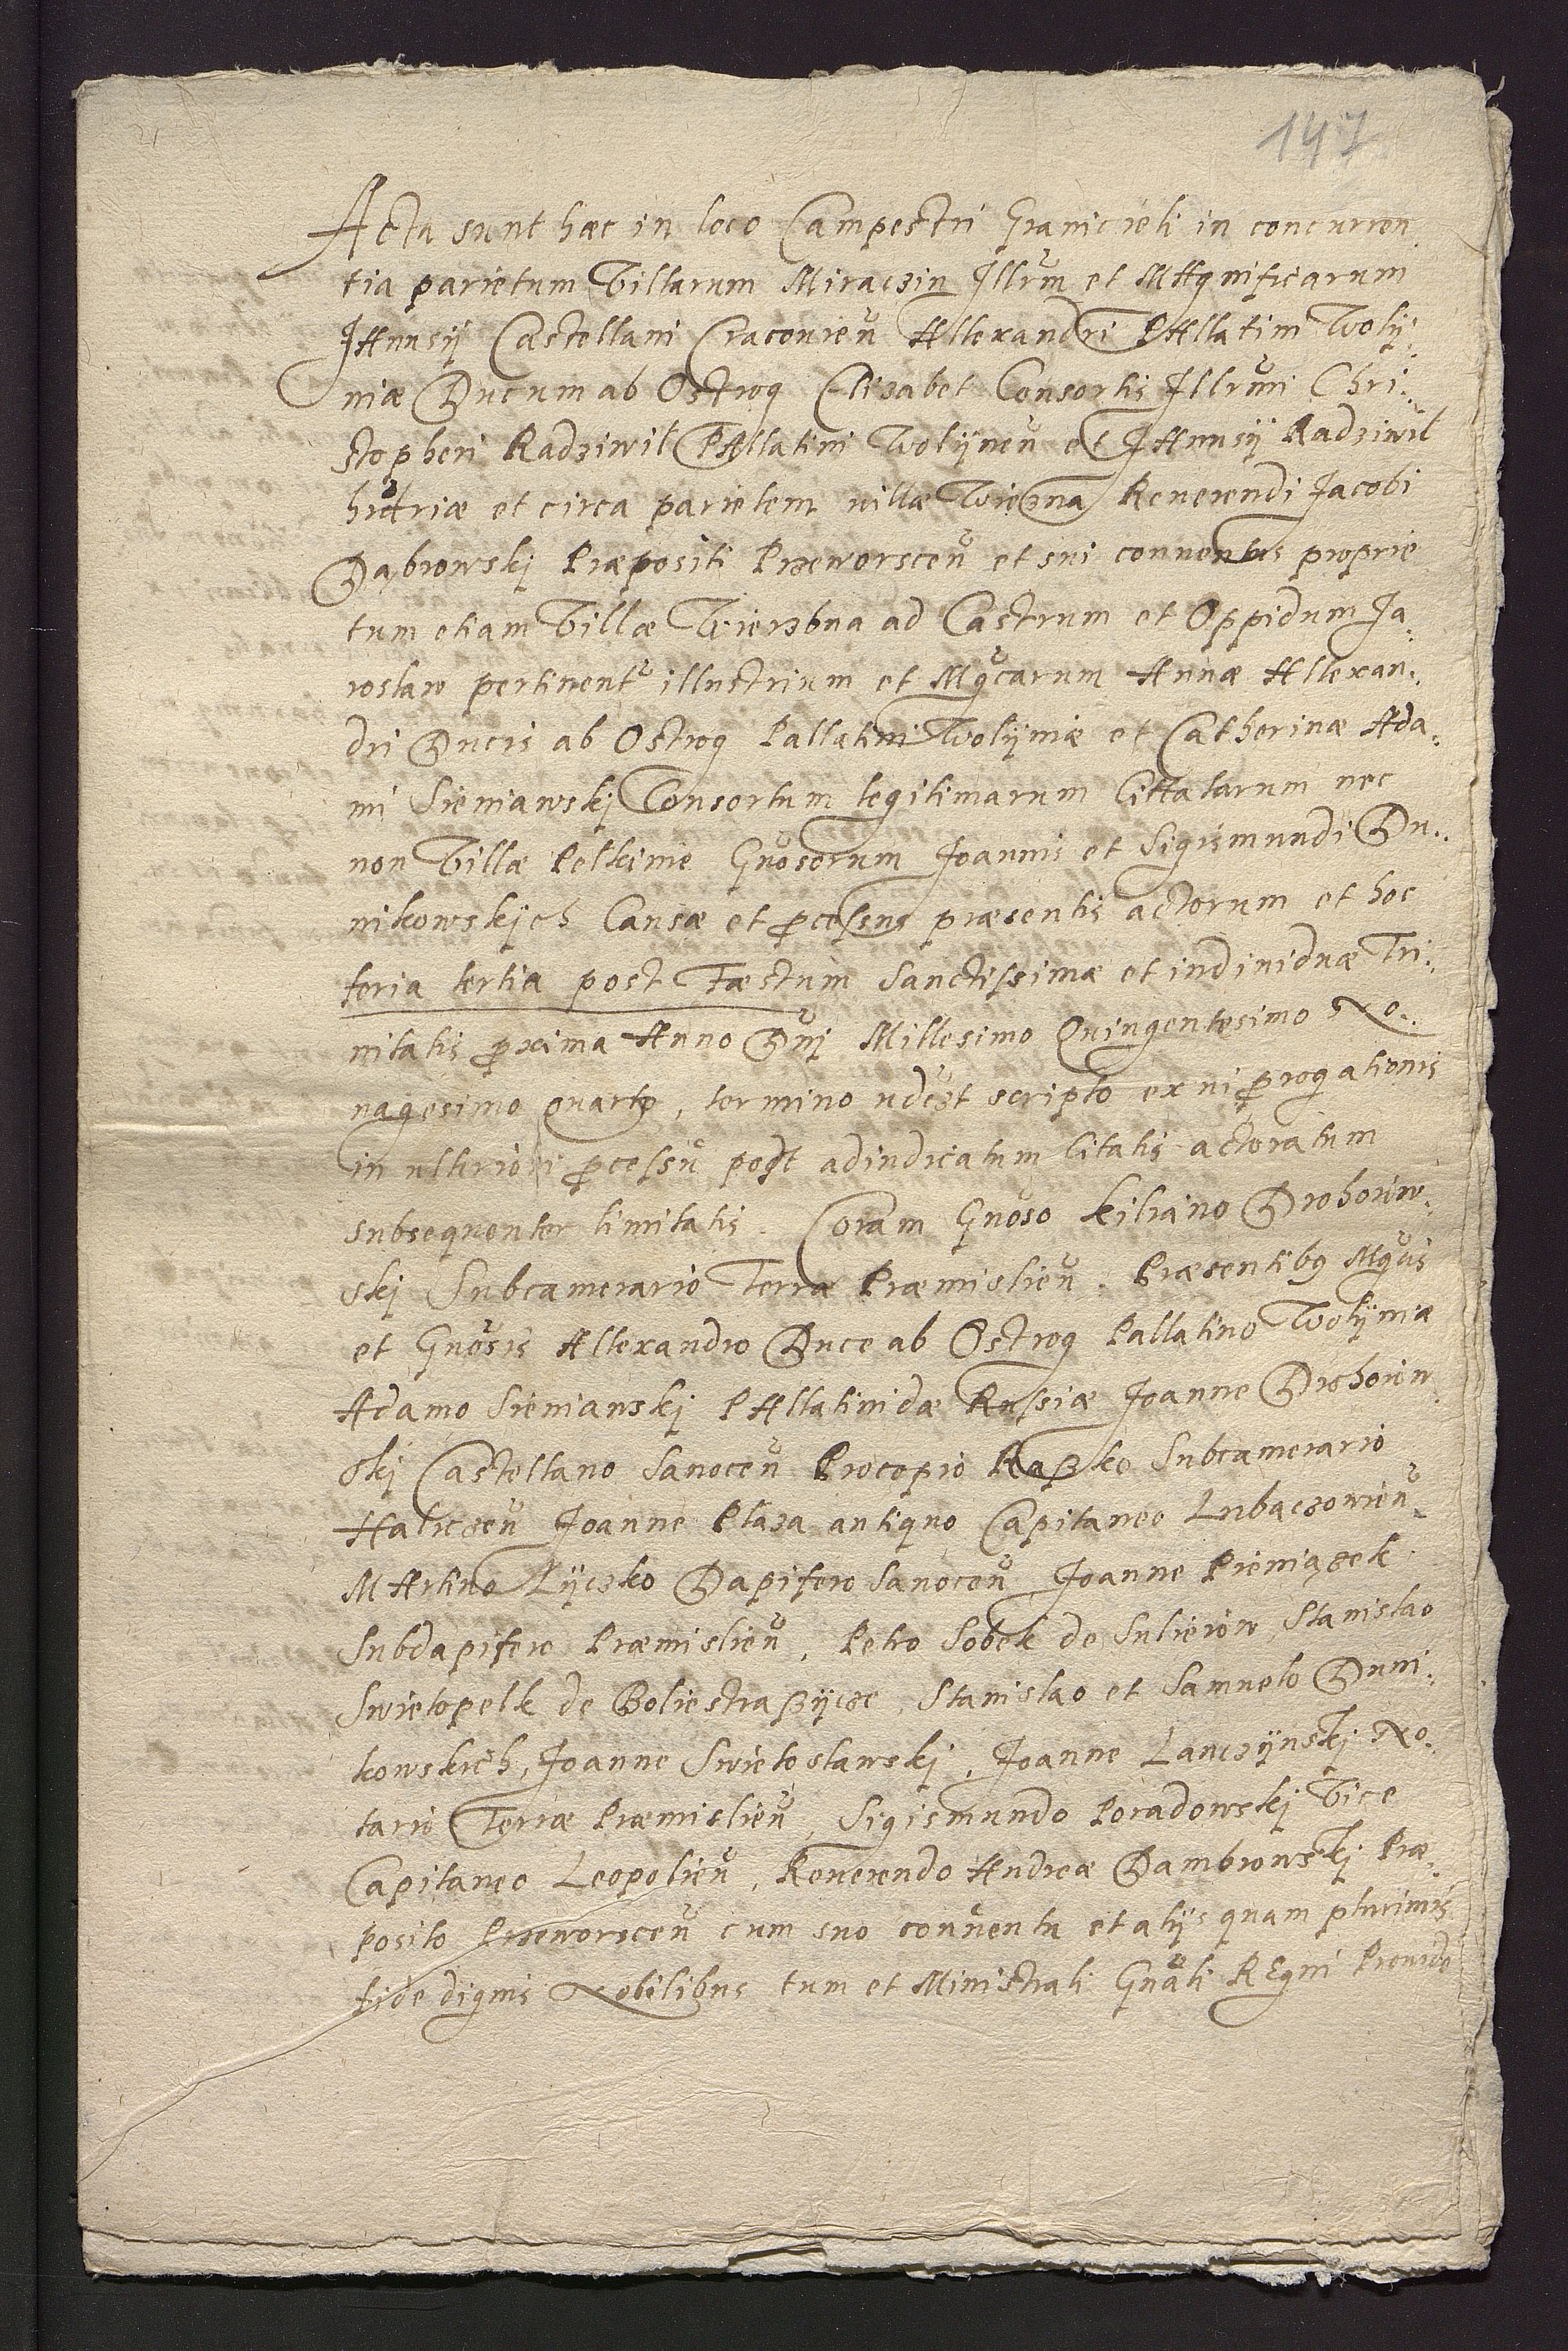 147
Acta sunt hæc in loco Campestri Granicieli in concurren
tia parietum Villarum Miraczin Illrm et MAgnificarum
JAnusij Castellani Cracovien Allexandri PAllatini Wolij:
niæ Ducum ab Ostrog Elizabet Consortis Illrmi Chri:
stopheri Radziwil PAllatini Wolijnen et JAnusij Radziwil
et circa parietem villæ Wiezna Reverendi Jacobi
Dąbrowskj Præpositi Przeworscen et sui conventus proprie
tum etiam Villæ Wierzbna ad Castrum et Oppidum Ja,
roslaw pertinent illustrium et Mgcarum Annæ Allexan:
dri Ducis ab Ostrog Pallatini Wolijniæ et Catherinæ Ada,
mi Sieniawskj Consortum legitimarum Cittatarum nec
non Villæ Pelkinie Gnosorum Joannis et Sigismundi Du:
nikowskjch Causæ et pcessus præsentis actorum et hoc
feria tertia post Fæstum Sanctissimæ et individuæ Tri:
nitatis pxima Anno Dnj Millesimo Quingentesimo No:
nagesimo quarto, termino scripto ex vi progationis
in ulteriori pcessu post adiudicatum Citatis actoratum
subsequenter limitatis. Coram Gnoso Kiliano Drohoiow:
skj Subcamerario Terræ Præmislien. Præsentibg Mgcis
et Gnosis Allexandro Duce ab Ostrog Pallatino Wolijniæ
Adamo Sieniauskj PAllatinidæ Russiæ Joanne Drohoiow
skj Castellano Sanocen Procopio Raßko Subcamerario
Haliczen Joanne Plaza antiquo Capitaneo Lubaczowien
MArtino Lijczko Dapifero Sanocen Joanne Pieniązek
Subdapifero Præmislien, Petro Sobek de Sulieiow Stanislao
Swietopelk de Boliestraßijcze, Stanislao et Samuelo Duni:
kowskich, Joanne Swietoslawskj, Joanne Lanczijnskj No:
tario Terræ Præmislien, Sigismundo Poradowskj Vice
Capitaneo Leopolien, Reverendo Andreæ Dambrowskj Præ,
posito Przeworscen cum suo conventu et alijs quam plurimis
fide dignis Nobilibus tum et Ministrali Gnali REgni Provido